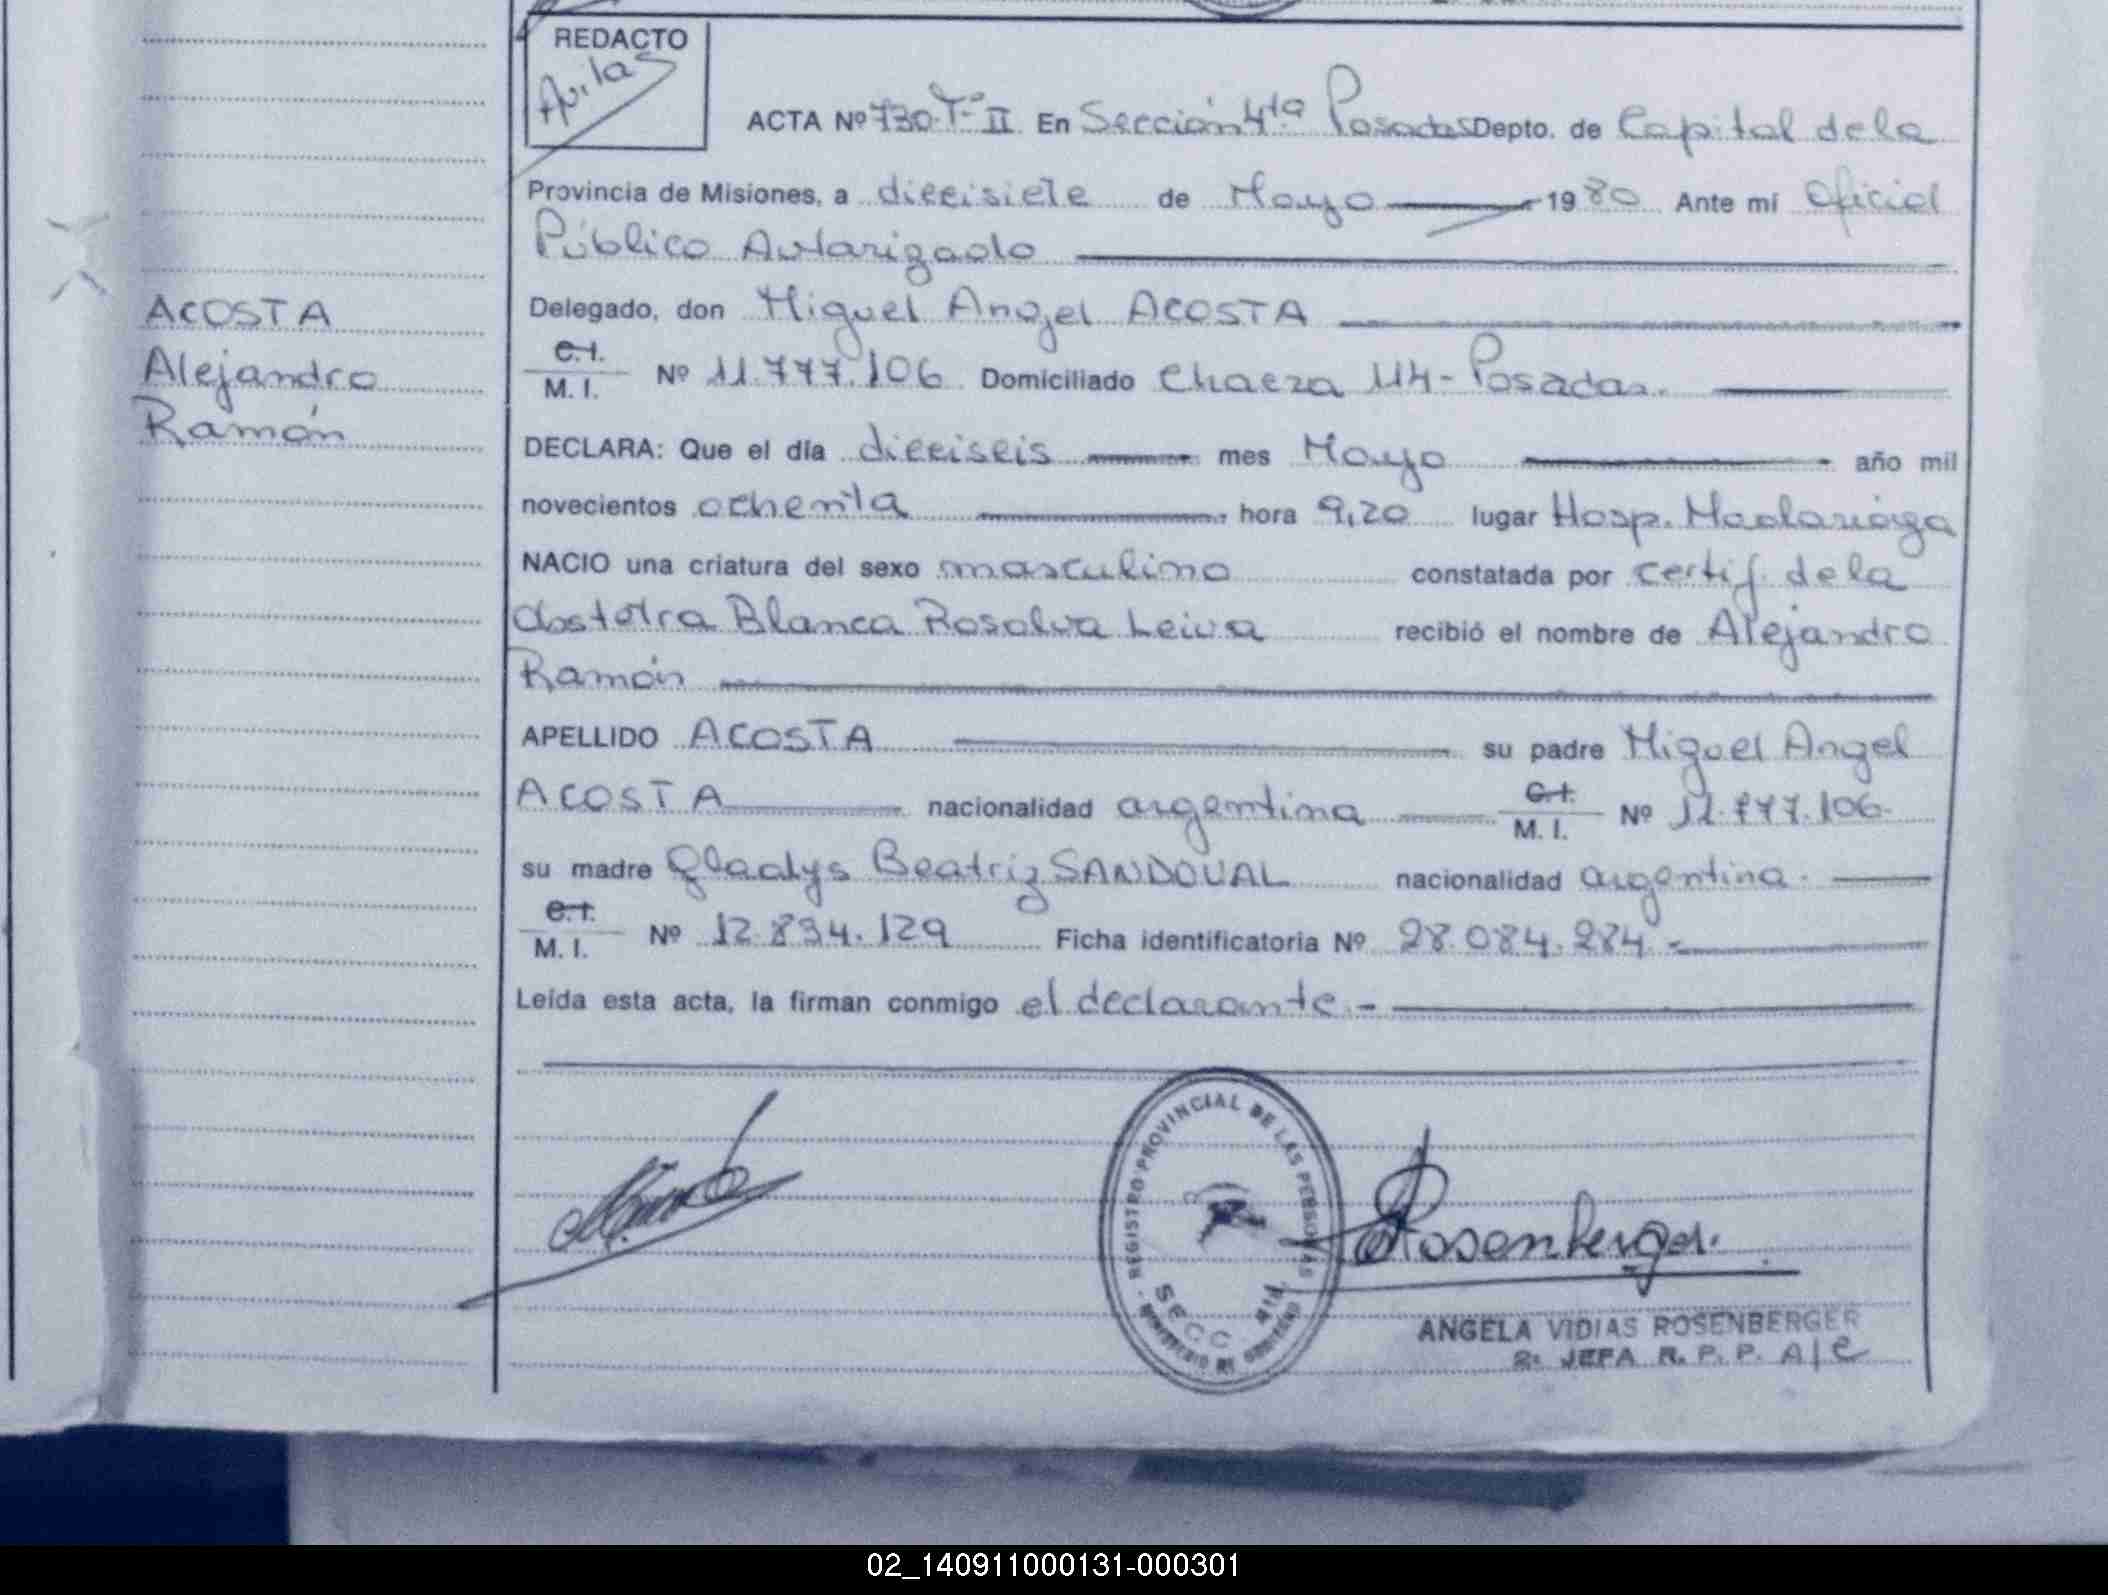 REDACTO
Avilas
ACTA Nº 730-Tº II En Sección 4ta Posadas Depto. de Capital de la
Provincia de Misiones, a diecisiete de Mayo 1980 Ante mí Oficial
Público Autorizado
Delegado, don Miguel Angel ACOSTA
C.I.
M. I. Nº 11.777.106 Domiciliado Chacra 114 - Posadas.
DECLARA: Que el día dieciseis mes Mayo año mil
novecientos ochenta hora 9,20 lugar Hosp. Madariaga
NACIO una criatura del sexo masculino constatada por certif. de la
Obstetra Blanca Rosalva Leiva recibió el nombre de Alejandro
Ramón
APELLIDO ACOSTA su padre Miguel Angel
ACOSTA nacionalidad argentina C.I.
M. I. Nº 11.777.106.
su madre Gladys Beatriz SANDOVAL nacionalidad argentina.
C.I.
M. I. Nº 12.834.129 Ficha identificatoria Nº 28.084.284.-
Leída esta acta, la firman conmigo el declarante.-
ACOSTA
Alejandro
Ramón
REGISTRO PROVINCIAL DE LAS PERSONAS
MINISTERIO DE GOBIERNO
SECC
Rosenberger.
ANGELA VIDIAS ROSENBERGER
2: JEFA R. P. P. A/C
02_140911000131-000301